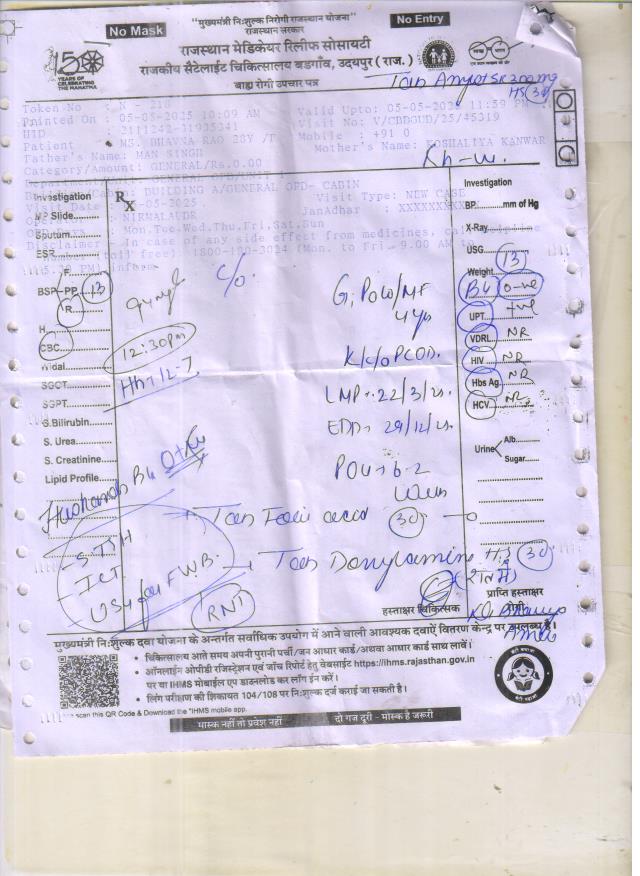 "मुख्यमंत्री निःशुल्क निरोगी राजस्थान योजना"
राजस्थान सरकार
No Mask
No Entry
राजस्थान मेडिकेयर रिलीफ सोसायटी
राजकीय सैटेलाईट चिकित्सालय बडगाँव, उदयपुर ( राज. )
बाह्य रोगी उपचार पत्र
150
YEARS OF
CELEBRATING
THE MAHATMA
HS (30)
Token No : N - 218
Printed On : 05-05-2025 10:09 AM Valid Upto: 05-05-2025 11:59 PM
HID : 2111242-31935341 Visit No: V/CBDGUD/25/45319
Patient : MS. BHAVNA RAO 28Y /T Mobile : +91 0
Father's Name: MAN SINGH Mother's Name: KOSHALIYA KANWAR
Category/Amount: GENERAL/Rs.0.00
BUILDING A/GENERAL OPD- CABIN
Visit Type: NEW CASE
JanAadhar : XXXXXXX
NIRMALAUDR
Mon,Tue,Wed,Thu,Fri,Sat,Sun
Disclaimer - In case of any side effect from medicines,
1800-180-3024 (Mon. to Fri. 9.00 AM
Investigation
Rx
MP Slide
Sputum
ESR
BSF-PP 113
R
H
CBC
Widal
SGOT
SGPT
S.Bilirubin
S. Urea
S. Creatinine
Lipid Profile
Investigation
BP mm of Hg
X-Ray
USG 113
Weight
BG O-ve
UPT +ve
VDRL NR
HIV NR
Hbs Ag NR
HCV NR
Urine Alb.
Sugar
C/o
12:30pm
Hb-12.7
G1P0W/MF
4yrs
K/C/O PCOD.
LMP - 22/3/25
EDD - 29/12/25
POG - 6.2
Weeks
Husbands BG O+ve
Tab Folic acid (30)
Tab Doxylamine HS (30)
(रात में)
- ICT
USG for FWB
RNT
हस्ताक्षर चिकित्सक
प्राप्ति हस्ताक्षर
रोगी
मुख्यमंत्री निःशुल्क दवा योजना के अन्तर्गत सर्वाधिक उपयोग में आने वाली आवश्यक दवाऐं वितरण केन्द्र पर उपलब्ध है।
• चिकित्सालय आते समय अपनी पुरानी पर्ची/जन आधार कार्ड/अथवा आधार कार्ड साथ लावें।
• ऑनलाईन ओपीडी रजिस्ट्रेशन एवं जाँच रिपोर्ट हेतु वेबसाईट https://ihms.rajasthan.gov.in
पर या IHMS मोबाईल एप डाउनलोड कर लॉग ईन करें।
• लिंग परीक्षण की शिकायत 104/108 पर निःशुल्क दर्ज कराई जा सकती है।
scan this QR Code & Download the "IHMS mobile app.
मास्क नहीं तो प्रवेश नहीं
दो गज दूरी - मास्क है जरूरी